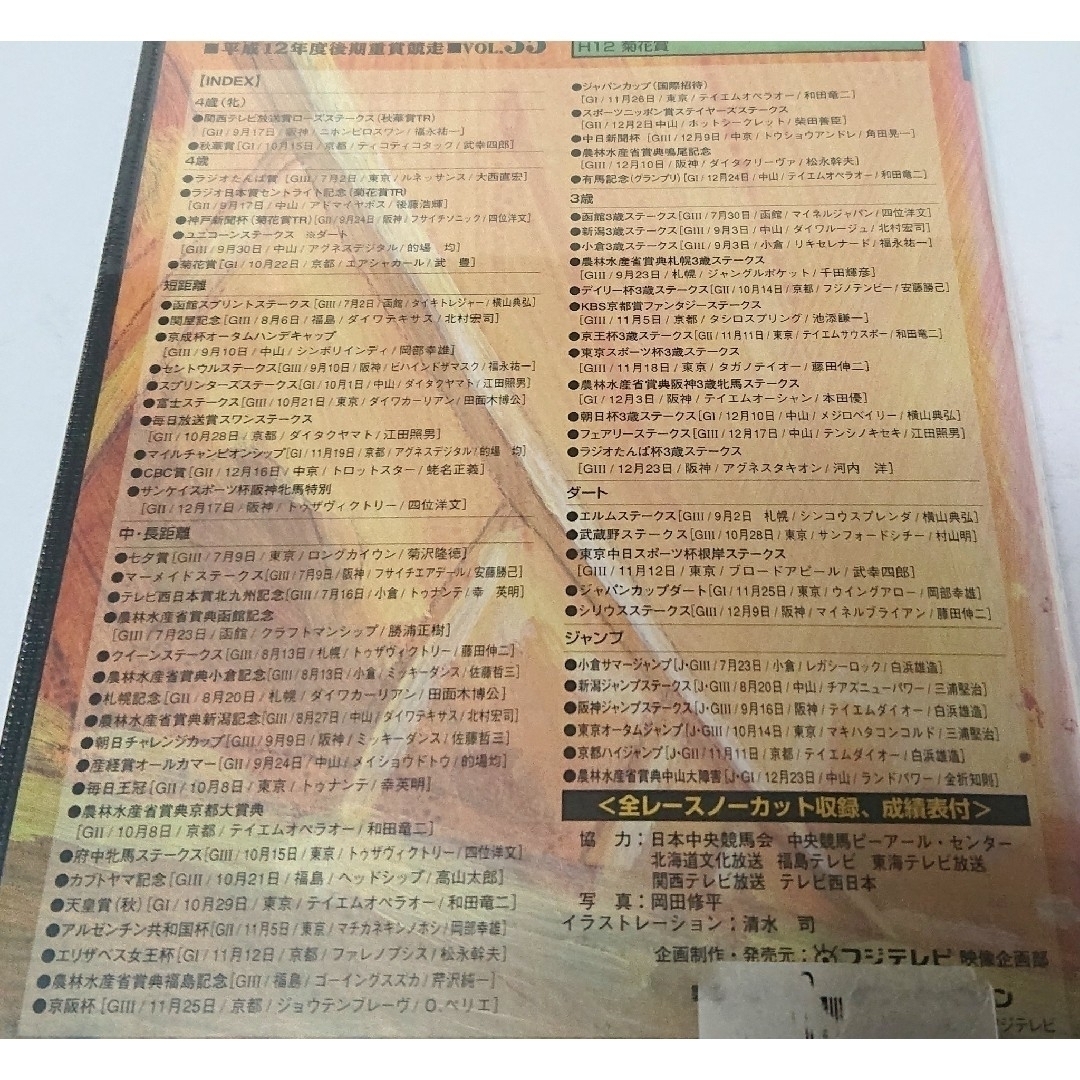 ■平成12年度後期重賞競走■VOL.35
H12 菊花賞
【INDEX】
4歳(牝)
●関西テレビ放送賞ローズステークス(秋華賞TR)
[GII/9月17日/阪神/ニホンピロスワン/福永祐一]
●秋華賞[GI/10月15日/京都/ティコティコタック/武幸四郎]
4歳
●ラジオたんぱ賞 [GIII/7月2日/東京/ルネッサンス/大西直宏]
●ラジオ日本賞セントライト記念(菊花賞TR)
[GII/9月17日/中山/アドマイヤボス/後藤浩輝]
●神戸新聞杯(菊花賞TR)[GII/9月24日/阪神/フサイチソニック/四位洋文]
●ユニコーンステークス ※ダート
[GIII/9月30日/中山/アグネスデジタル/的場 均]
●菊花賞[GI/10月22日/京都/エアシャカール/武 豊]
短距離
●函館スプリントステークス[GIII/7月2日/函館/タイキトレジャー/横山典弘]
●関屋記念[GIII/8月6日/福島/ダイワテキサス/北村宏司]
●京成杯オータムハンデキャップ
[GIII/9月10日/中山/シンボリインディ/岡部幸雄]
●セントウルステークス[GIII/9月10日/阪神/ビハインドザマスク/福永祐一]
●スプリンターズステークス[GI/10月1日/中山/ダイタクヤマト/江田照男]
●富士ステークス[GIII/10月21日/東京/ダイワカーリアン/田面木博公]
●毎日放送賞スワンステークス
[GII/10月28日/京都/ダイタクヤマト/江田照男]
●マイルチャンピオンシップ[GI/11月19日/京都/アグネスデジタル/的場 均]
●CBC賞[GII/12月16日/中京/トロットスター/蛯名正義]
●サンケイスポーツ杯阪神牝馬特別
[GII/12月17日/阪神/トゥザヴィクトリー/四位洋文]
中・長距離
●七夕賞[GIII/7月9日/東京/ロングカイウン/菊沢隆徳]
●マーメイドステークス[GIII/7月9日/阪神/フサイチエアデール/安藤勝己]
●テレビ西日本賞北九州記念[GIII/7月16日/小倉/トゥナンテ/幸 英明]
●農林水産省賞典函館記念
[GIII/7月23日/函館/クラフトマンシップ/勝浦正樹]
●クイーンステークス[GIII/8月13日/札幌/トゥザヴィクトリー/藤田伸二]
●農林水産省賞典小倉記念[GIII/8月13日/小倉/ミッキーダンス/佐藤哲三]
●札幌記念[GII/8月20日/札幌/ダイワカーリアン/田面木博公]
●農林水産省賞典新潟記念[GIII/8月27日/中山/ダイワテキサス/北村宏司]
●朝日チャレンジカップ[GIII/9月9日/阪神/ミッキーダンス/佐藤哲三]
●産経賞オールカマー[GII/9月24日/中山/メイショウドトウ/的場均]
●毎日王冠[GII/10月8日/東京/トゥナンテ/幸英明]
●農林水産省賞典京都大賞典
[GII/10月8日/京都/テイエムオペラオー/和田竜二]
●府中牝馬ステークス[GIII/10月15日/東京/トゥザヴィクトリー/四位洋文]
●カブトヤマ記念[GIII/10月21日/福島/ヘッドシップ/高山太郎]
●天皇賞(秋)[GI/10月29日/東京/テイエムオペラオー/和田竜二]
●アルゼンチン共和国杯[GII/11月5日/東京/マチカネキンノホシ/岡部幸雄]
●エリザベス女王杯[GI/11月12日/京都/ファレノプシス/松永幹夫]
●農林水産省賞典福島記念[GIII/福島/ゴーイングスズカ/芹沢純一]
●京阪杯[GIII/11月25日/京都/ジョウテンブレーヴ/O.ペリエ]
●ジャパンカップ(国際招待)
[GI/11月26日/東京/テイエムオペラオー/和田竜二]
●スポーツニッポン賞ステイヤーズステークス
[GII/12月2日中山/ホットシークレット/柴田善臣]
●中日新聞杯[GIII/12月9日/中京/トウショウアンドレ/角田晃一]
●農林水産省賞典鳴尾記念
[GIII/12月10日/阪神/ダイタクリーヴァ/松永幹夫]
●有馬記念(グランプリ)[GI/12月24日/中山/テイエムオペラオー/和田竜二]
3歳
●函館3歳ステークス[GIII/7月30日/函館/マイネルジャパン/四位洋文]
●新潟3歳ステークス[GIII/9月3日/中山/ダイワルージュ/北村宏司]
●小倉3歳ステークス[GIII/9月3日/小倉/リキセレナード/福永祐一]
●農林水産省賞典札幌3歳ステークス
[GIII/9月23日/札幌/ジャングルポケット/千田輝彦]
●デイリー杯3歳ステークス[GII/10月14日/京都/フジノテンビー/安藤勝己]
●KBS京都賞ファンタジーステークス
[GIII/11月5日/京都/タシロスプリング/池添謙一]
●京王杯3歳ステークス[GII/11月11日/東京/テイエムサウスポー/和田竜二]
●東京スポーツ杯3歳ステークス
[GIII/11月18日/東京/タガノテイオー/藤田伸二]
●農林水産省賞典阪神3歳牝馬ステークス
[GI/12月3日/阪神/テイエムオーシャン/本田優]
●朝日杯3歳ステークス[GI/12月10日/中山/メジロベイリー/横山典弘]
●フェアリーステークス[GIII/12月17日/中山/テンシノキセキ/江田照男]
●ラジオたんぱ杯3歳ステークス
[GIII/12月23日/阪神/アグネスタキオン/河内 洋]
ダート
●エルムステークス[GIII/9月2日 札幌/シンコウスプレンダ/横山典弘]
●武蔵野ステークス[GIII/10月28日/東京/サンフォードシチー/村山明]
●東京中日スポーツ杯根岸ステークス
[GIII/11月12日/東京/ブロードアピール/武幸四郎]
●ジャパンカップダート[GI/11月25日/東京/ウイングアロー/岡部幸雄]
●シリウスステークス[GIII/12月9日/阪神/マイネルブライアン/藤田伸二]
ジャンプ
●小倉サマージャンプ[J・GIII/7月23日/小倉/レガシーロック/白浜雄造]
●新潟ジャンプステークス[J・GIII/8月20日/中山/チアズニューパワー/三浦堅治]
●阪神ジャンプステークス[J・GIII/9月16日/阪神/テイエムダイオー/白浜雄造]
●東京オータムジャンプ[J・GIII/10月14日/東京/マキハタコンコルド/三浦堅治]
●京都ハイジャンプ[J・GII/11月11日/京都/テイエムダイオー/白浜雄造]
●農林水産省賞典中山大障害[J・GI/12月23日/中山/ランドパワー/金折知則]
<全レースノーカット収録、成績表付>
協 力:日本中央競馬会 中央競馬ピーアール・センター
北海道文化放送 福島テレビ 東海テレビ放送
関西テレビ放送 テレビ西日本
写 真:岡田修平
イラストレーション:清水 司
企画制作・発売元:フジテレビ 映像企画部
ン
フジテレビ